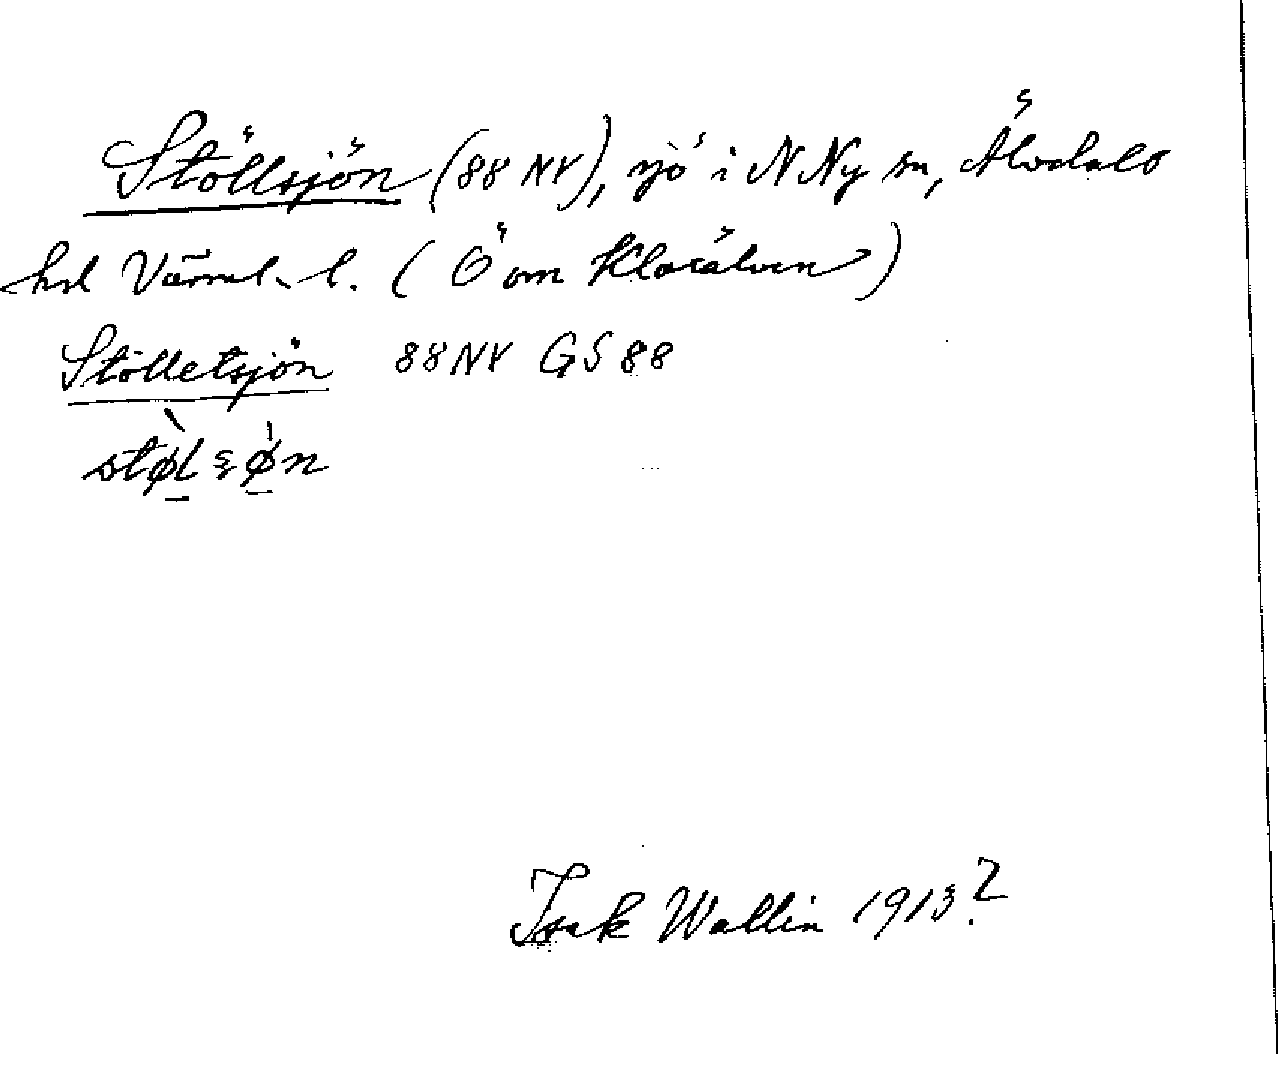 Stöllsjön (88 NV), sjö i N Ny sn, Älvdals
hd Värml. l. (Ö om Klarälven)
Stölletsjön 88 NV GS 88
Isak Wallin 1913?